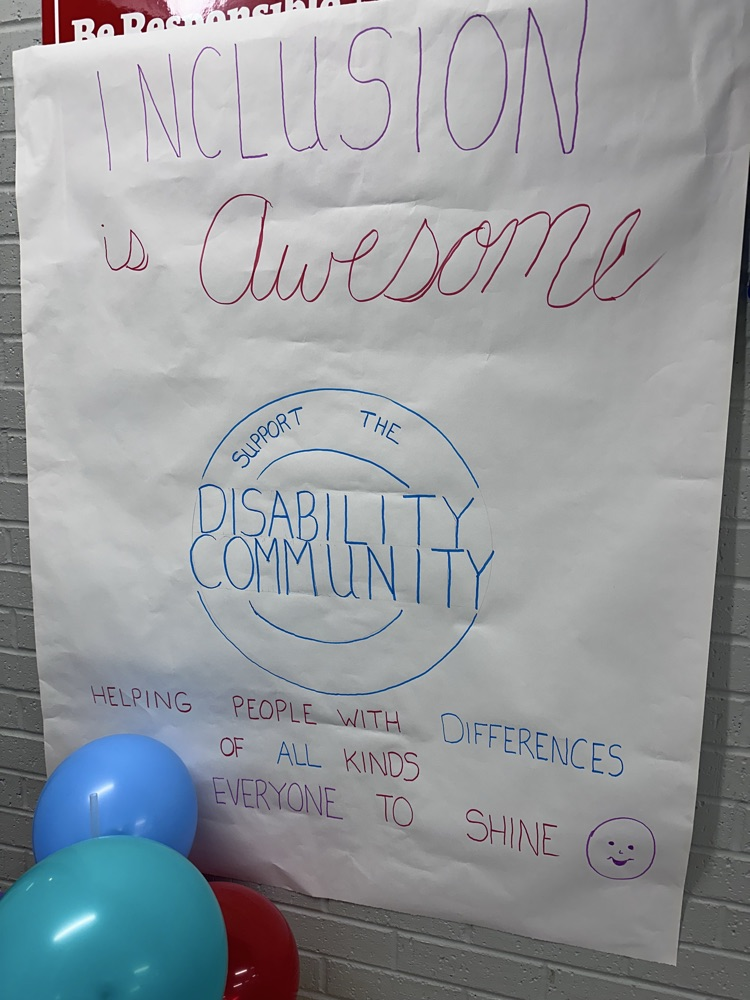 Be Responsible
INCLUSION
is Awesome
SUPPORT THE
DISABILITY
COMMUNITY
HELPING PEOPLE WITH DIFFERENCES
OF ALL KINDS
EVERYONE TO SHINE